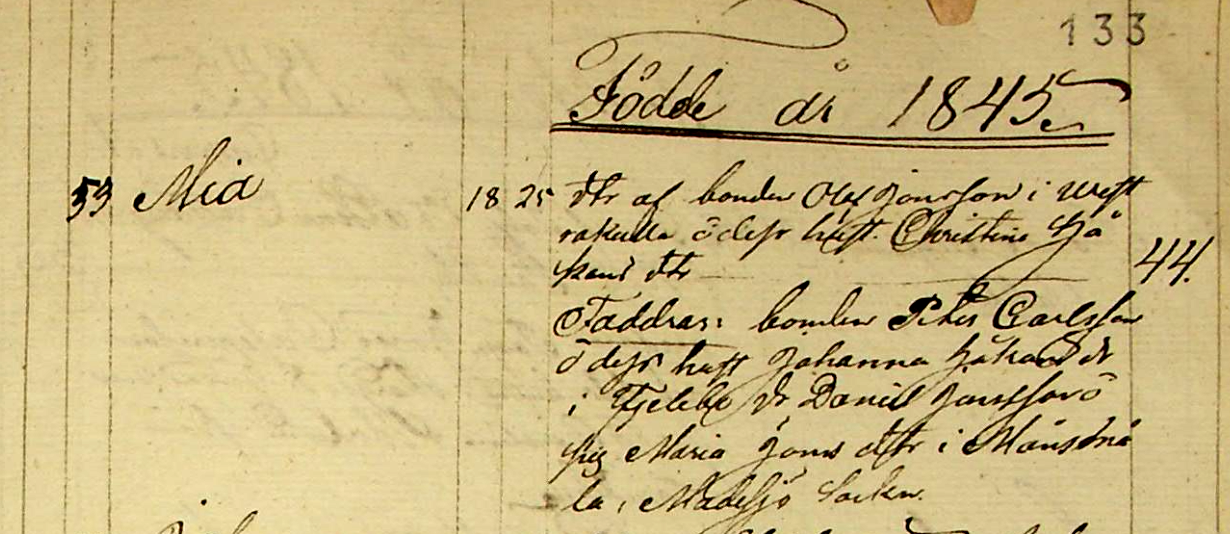 133
Födde år 1845.
53 Mia 18 25 dtr af bonden Olof Jonsson i West
rakulla ödess hust. Christina Hå
kans dtr
44.
Faddrar: bonden Peter Carlsson
ödess hust Johanna Håkans dr
i dr Daniel ö
pig Maria Jons dtr i Månsmå
la i Madesjö Socken.